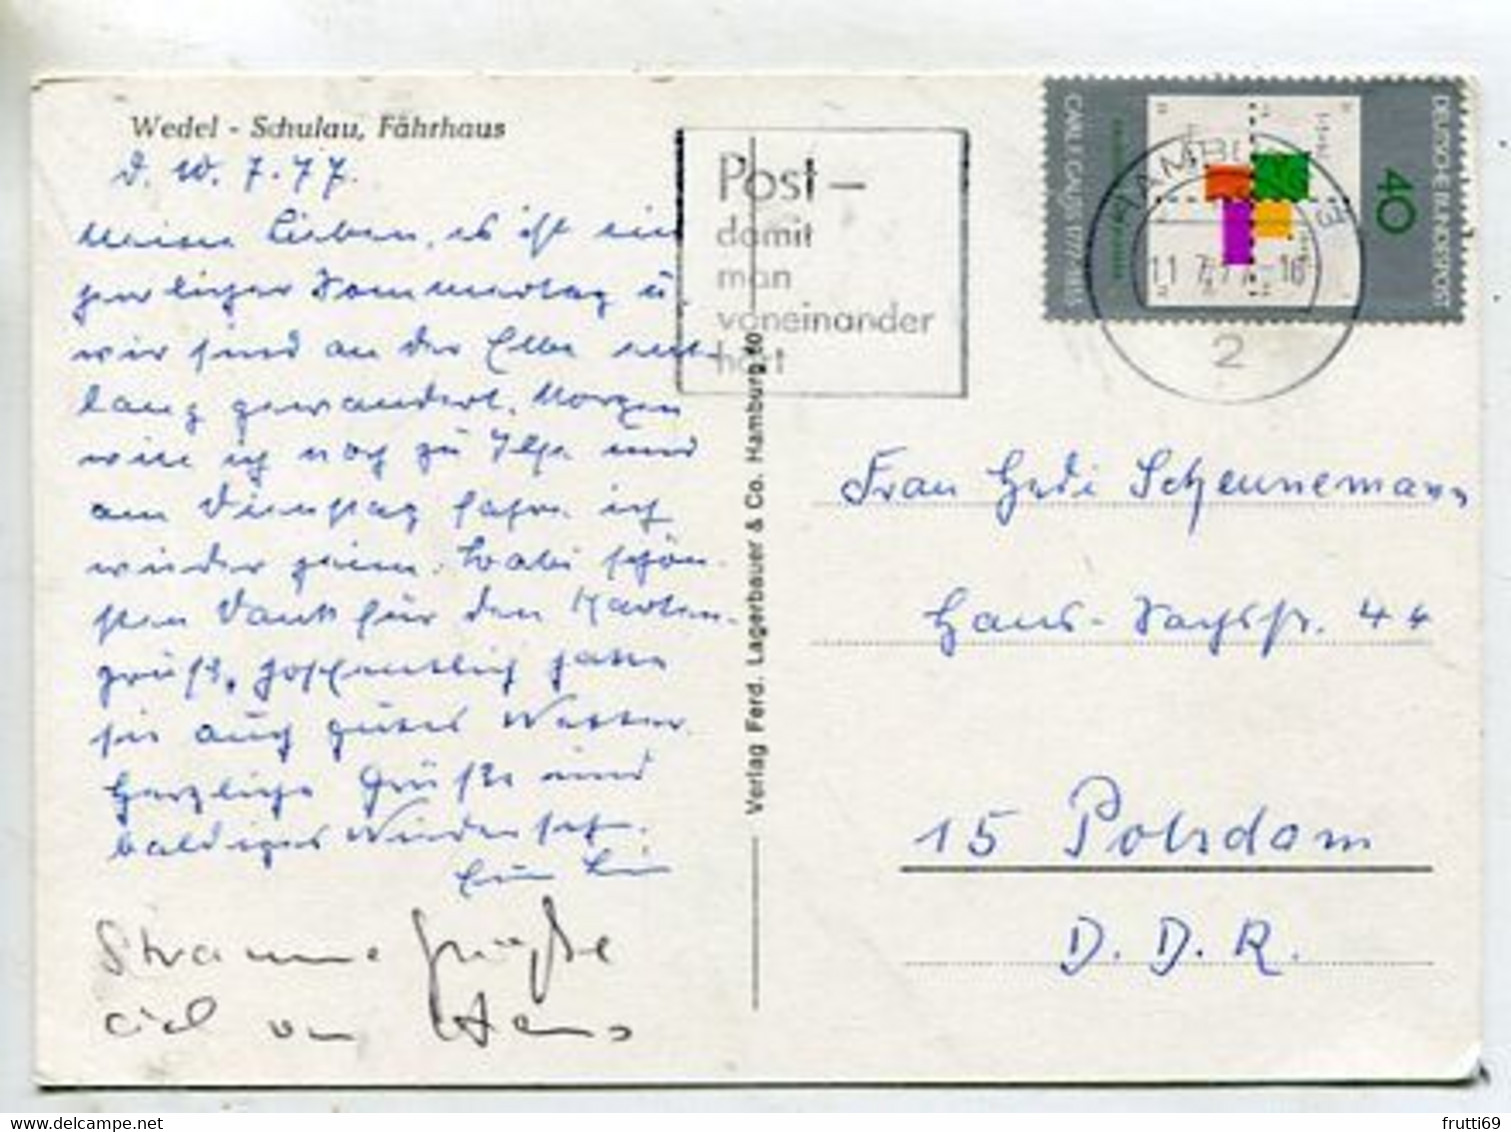 Wedel - Schulau, Fährhaus
d. 10. 7. 77.
Meine Lieben, es ist ein
herrlicher Sommertag u.
wir sind an der Elbe ent-
lang gewandert. Morgen
will ich noch zu Ilse und
am Dienstag fahre ich
wieder heim. Habt schön-
sten Dank für den Karten-
gruß, hoffentlich hattet
Ihr auch gutes Wetter.
Herzliche Grüße und
baldiges Wiedersehn.
Stramme Grüße
von Hans
Verlag Ferd. Lagerbauer & Co. Hamburg 50
Post –
damit
man
voneinander
hört
DEUTSCHE BUNDESPOST
40
CARL F. GAUSS 1777-1855
HAMBURG
11. 7. 77 - 16
2
Frau Hedi Scheunemann
Hans-Sachsstr. 44
15 Potsdam
D. D. R.
delcampe.net
frutti69